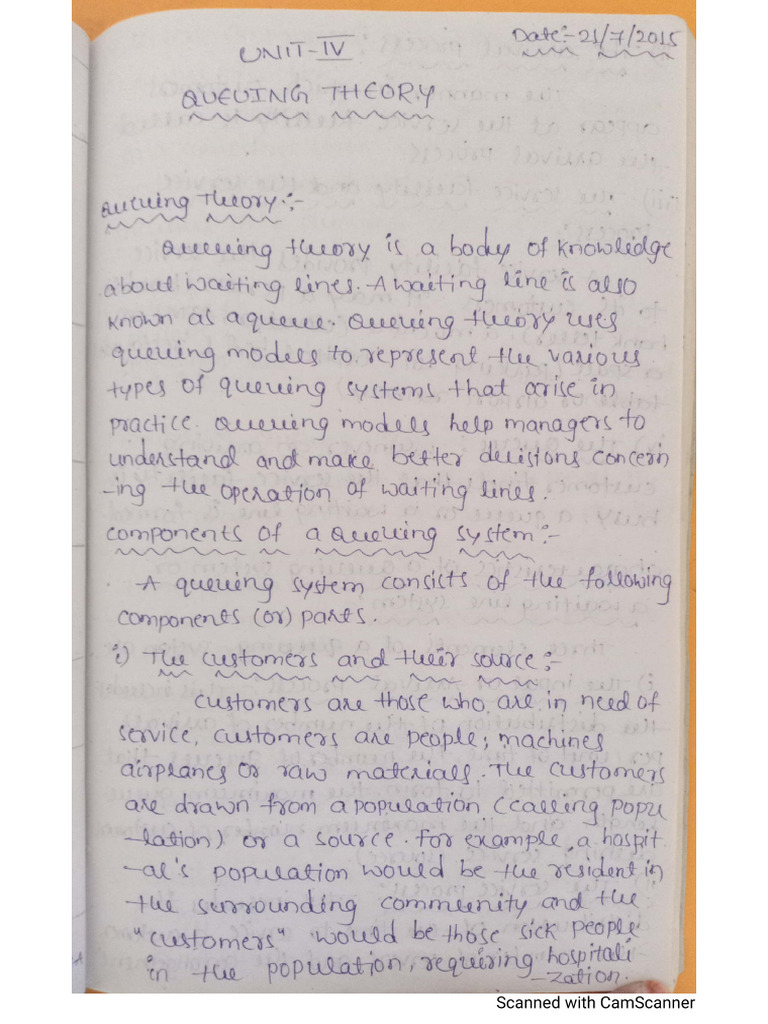 Date:-21/7/2015
UNIT-IV
QUEUING THEORY
Queuing Theory:-
Queuing theory is a body of knowledge
about waiting lines. A waiting line is also
known as a queue. Queuing theory uses
queuing models to represent the various
types of queuing systems that arise in
practice. Queuing models help managers to
understand and make better decisions concern
-ing the operation of waiting lines.
components of a Queuing system:-
A queuing system consists of the following
components (or) parts.
i) The customers and their source:-
customers are those who, are, in need of
service, customers are people, machines
airplanes or raw materials. The customers
are drawn from a population (calling popu
-lation) or a source. For example, a hospit
-al's population would be the resident in
the surrounding community and the
"customers" would be those sick people
in the population, requiring hospitali
-zation.
Scanned with CamScanner